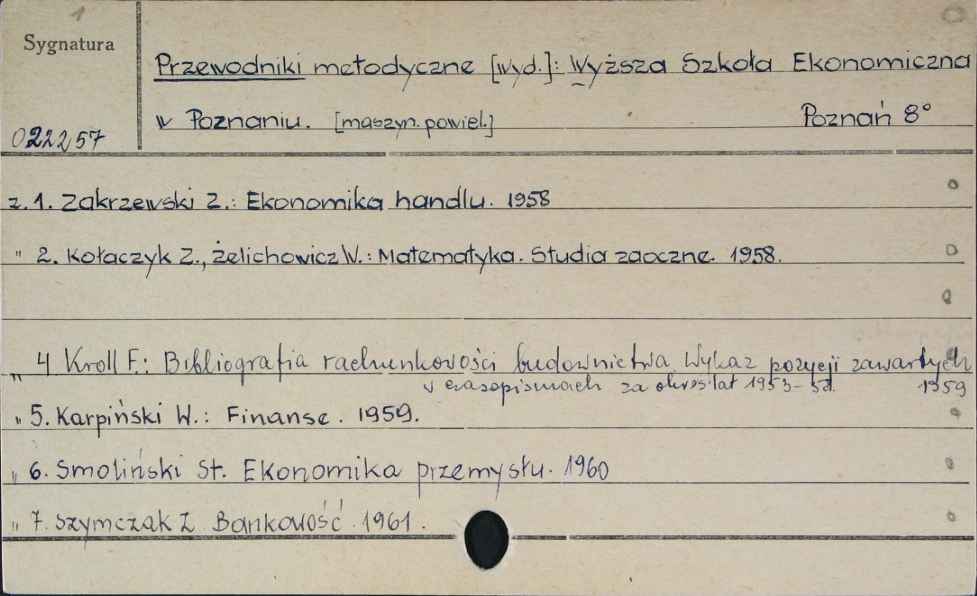 1
Sygnatura
Przewodniki metodyczne [wyd.]: Wyższa Szkoła Ekonomiczna
w Poznaniu. [maszyn. powiel.] Poznań 8°
022257
z. 1. Zakrzewski Z.: Ekonomika handlu. 1958
" 2. Kołaczyk Z., Żelichowicz W.: Matematyka. Studia zaoczne. 1958.
" 4 Kroll F.: Bibliografia rachunkowości budownictwa Wykaz pozycji zawartych
w czasopismach za okres lat 1953-58. 1959
" 5. Karpiński W.: Finanse. 1959.
" 6. Smoliński St. Ekonomika przemysłu. 1960
" 7. Szymczak Z Bankowość. 1961.